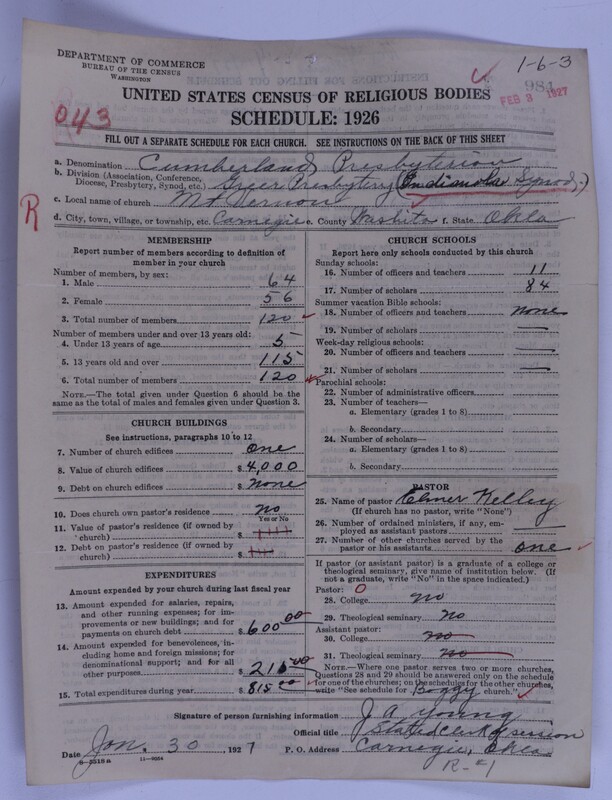 DEPARTMENT OF COMMERCE
BUREAU OF THE CENSUS
WASHINGTON
1-6-3
984
FEB 3 1927
043
UNITED STATES CENSUS OF RELIGIOUS BODIES
SCHEDULE: 1926
FILL OUT A SEPARATE SCHEDULE FOR EACH CHURCH. SEE INSTRUCTIONS ON THE BACK OF THIS SHEET
a. Denomination Cumberland Presbyterian
b. Division (Association, Conference, Diocese, Presbytery, Synod, etc.) Greer Presbytery (Indianola Synod.)
c. Local name of church Mt Vernon
R
d. City, town, village, or township, etc. Carnegie e. County Washita f. State. Okla
MEMBERSHIP
Report number of members according to definition of
member in your church
Number of members, by sex:
1. Male 64
2. Female 56
3. Total number of members 120
Number of members under and over 13 years old:
4. Under 13 years of age 5
5. 13 years old and over 115
6. Total number of members 120
NOTE.—The total given under Question 6 should be
same as the total of males and females given under Question 3.
CHURCH BUILDINGS
See instructions, paragraphs 10 to 12
7. Number of church edifices one
8. Value of church edifices $ 4,000
9. Debt on church edifices $ none
10. Does church own pastor's residence no
Yes or No
11. Value of pastor's residence (if owned by
church) $
12. Debt on pastor's residence (if owned by
church) $
EXPENDITURES
Amount expended by your church during last fiscal year
13. Amount expended for salaries, repairs,
and other running expenses; for im-
provements or new buildings; and for
payments on church debt $ 600.00
14. Amount expended for benevolences, in-
cluding home and foreign missions; for
denominational support; and for all
other purposes $ 215.00
15. Total expenditures during year $ 815.00
CHURCH SCHOOLS
Report here only schools conducted by this church
Sunday schools:
16. Number of officers and teachers 11
17. Number of scholars 84
Summer vacation Bible schools:
18. Number of officers and teachers none
19. Number of scholars
Week-day religious schools:
20. Number of officers and teachers
21. Number of scholars
Parochial schools:
22. Number of administrative officers
23. Number of teachers—
a. Elementary (grades 1 to 8)
b. Secondary
24. Number of scholars—
a. Elementary (grades 1 to 8)
b. Secondary
PASTOR
25. Name of pastor Elmer Kelley
(If church has no pastor, write "None")
26. Number of ordained ministers, if any, em-
ployed as assistant pastors
27. Number of other churches served by the
pastor or his assistants one
If pastor (or assistant pastor) is a graduate of a college or
theological seminary, give name of institution below. (If
not a graduate, write "No" in the space indicated.)
Pastor: 0
28. College no
29. Theological seminary No
Assistant pastor:
30. College no
31. Theological seminary no
NOTE.—Where one pastor serves two or more churches,
Questions 28 and 29 should be answered only on the schedule
for one of the churches; on the schedules for the other churches,
write "See schedule for Boggy church."
Signature of person furnishing information J. A. Young
Official title Stated clerk of session
Date Jan. 30, 1927 P. O. Address Carnegie, Okla
R-#1
8-5318a 11-9564